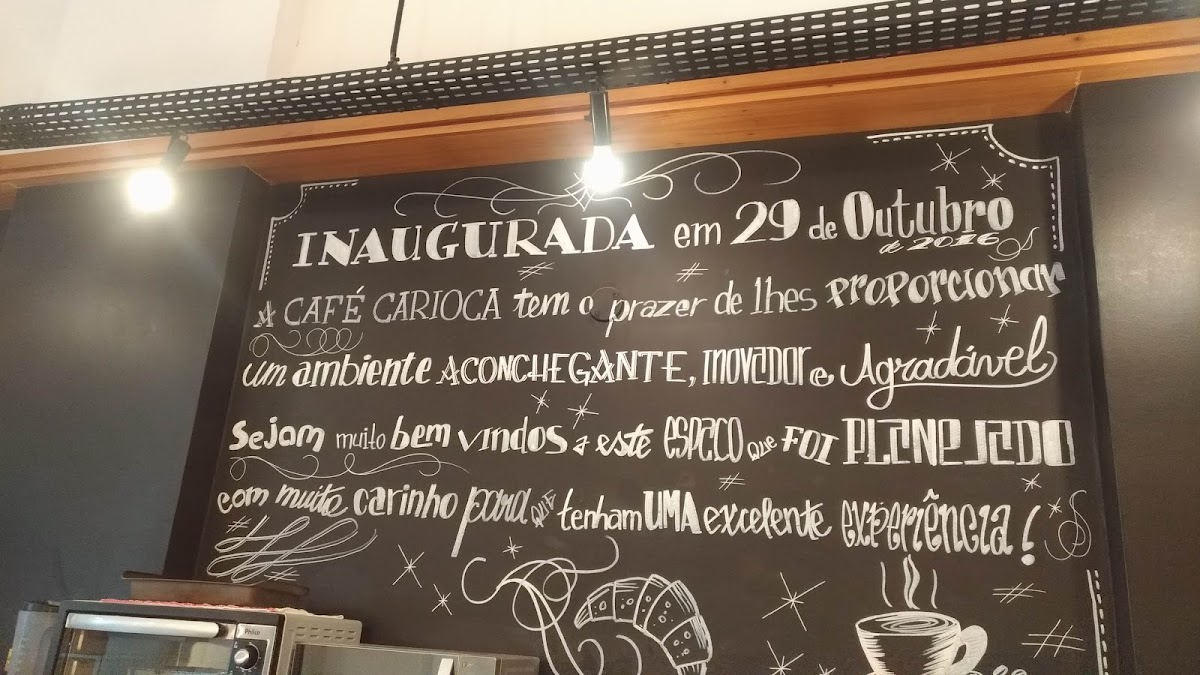 INAUGURADA em 29 de Outubro
de 2016
A CAFÉ CARIOCA tem o prazer de lhes proporcionar
um ambiente ACONCHEGANTE, INOVADOR e Agradável
Sejam muito bem vindos a este ESPAÇO QUE FOI PLANEJADO
com muito carinho para QUE tenham UMA excelente experiência!
Philco